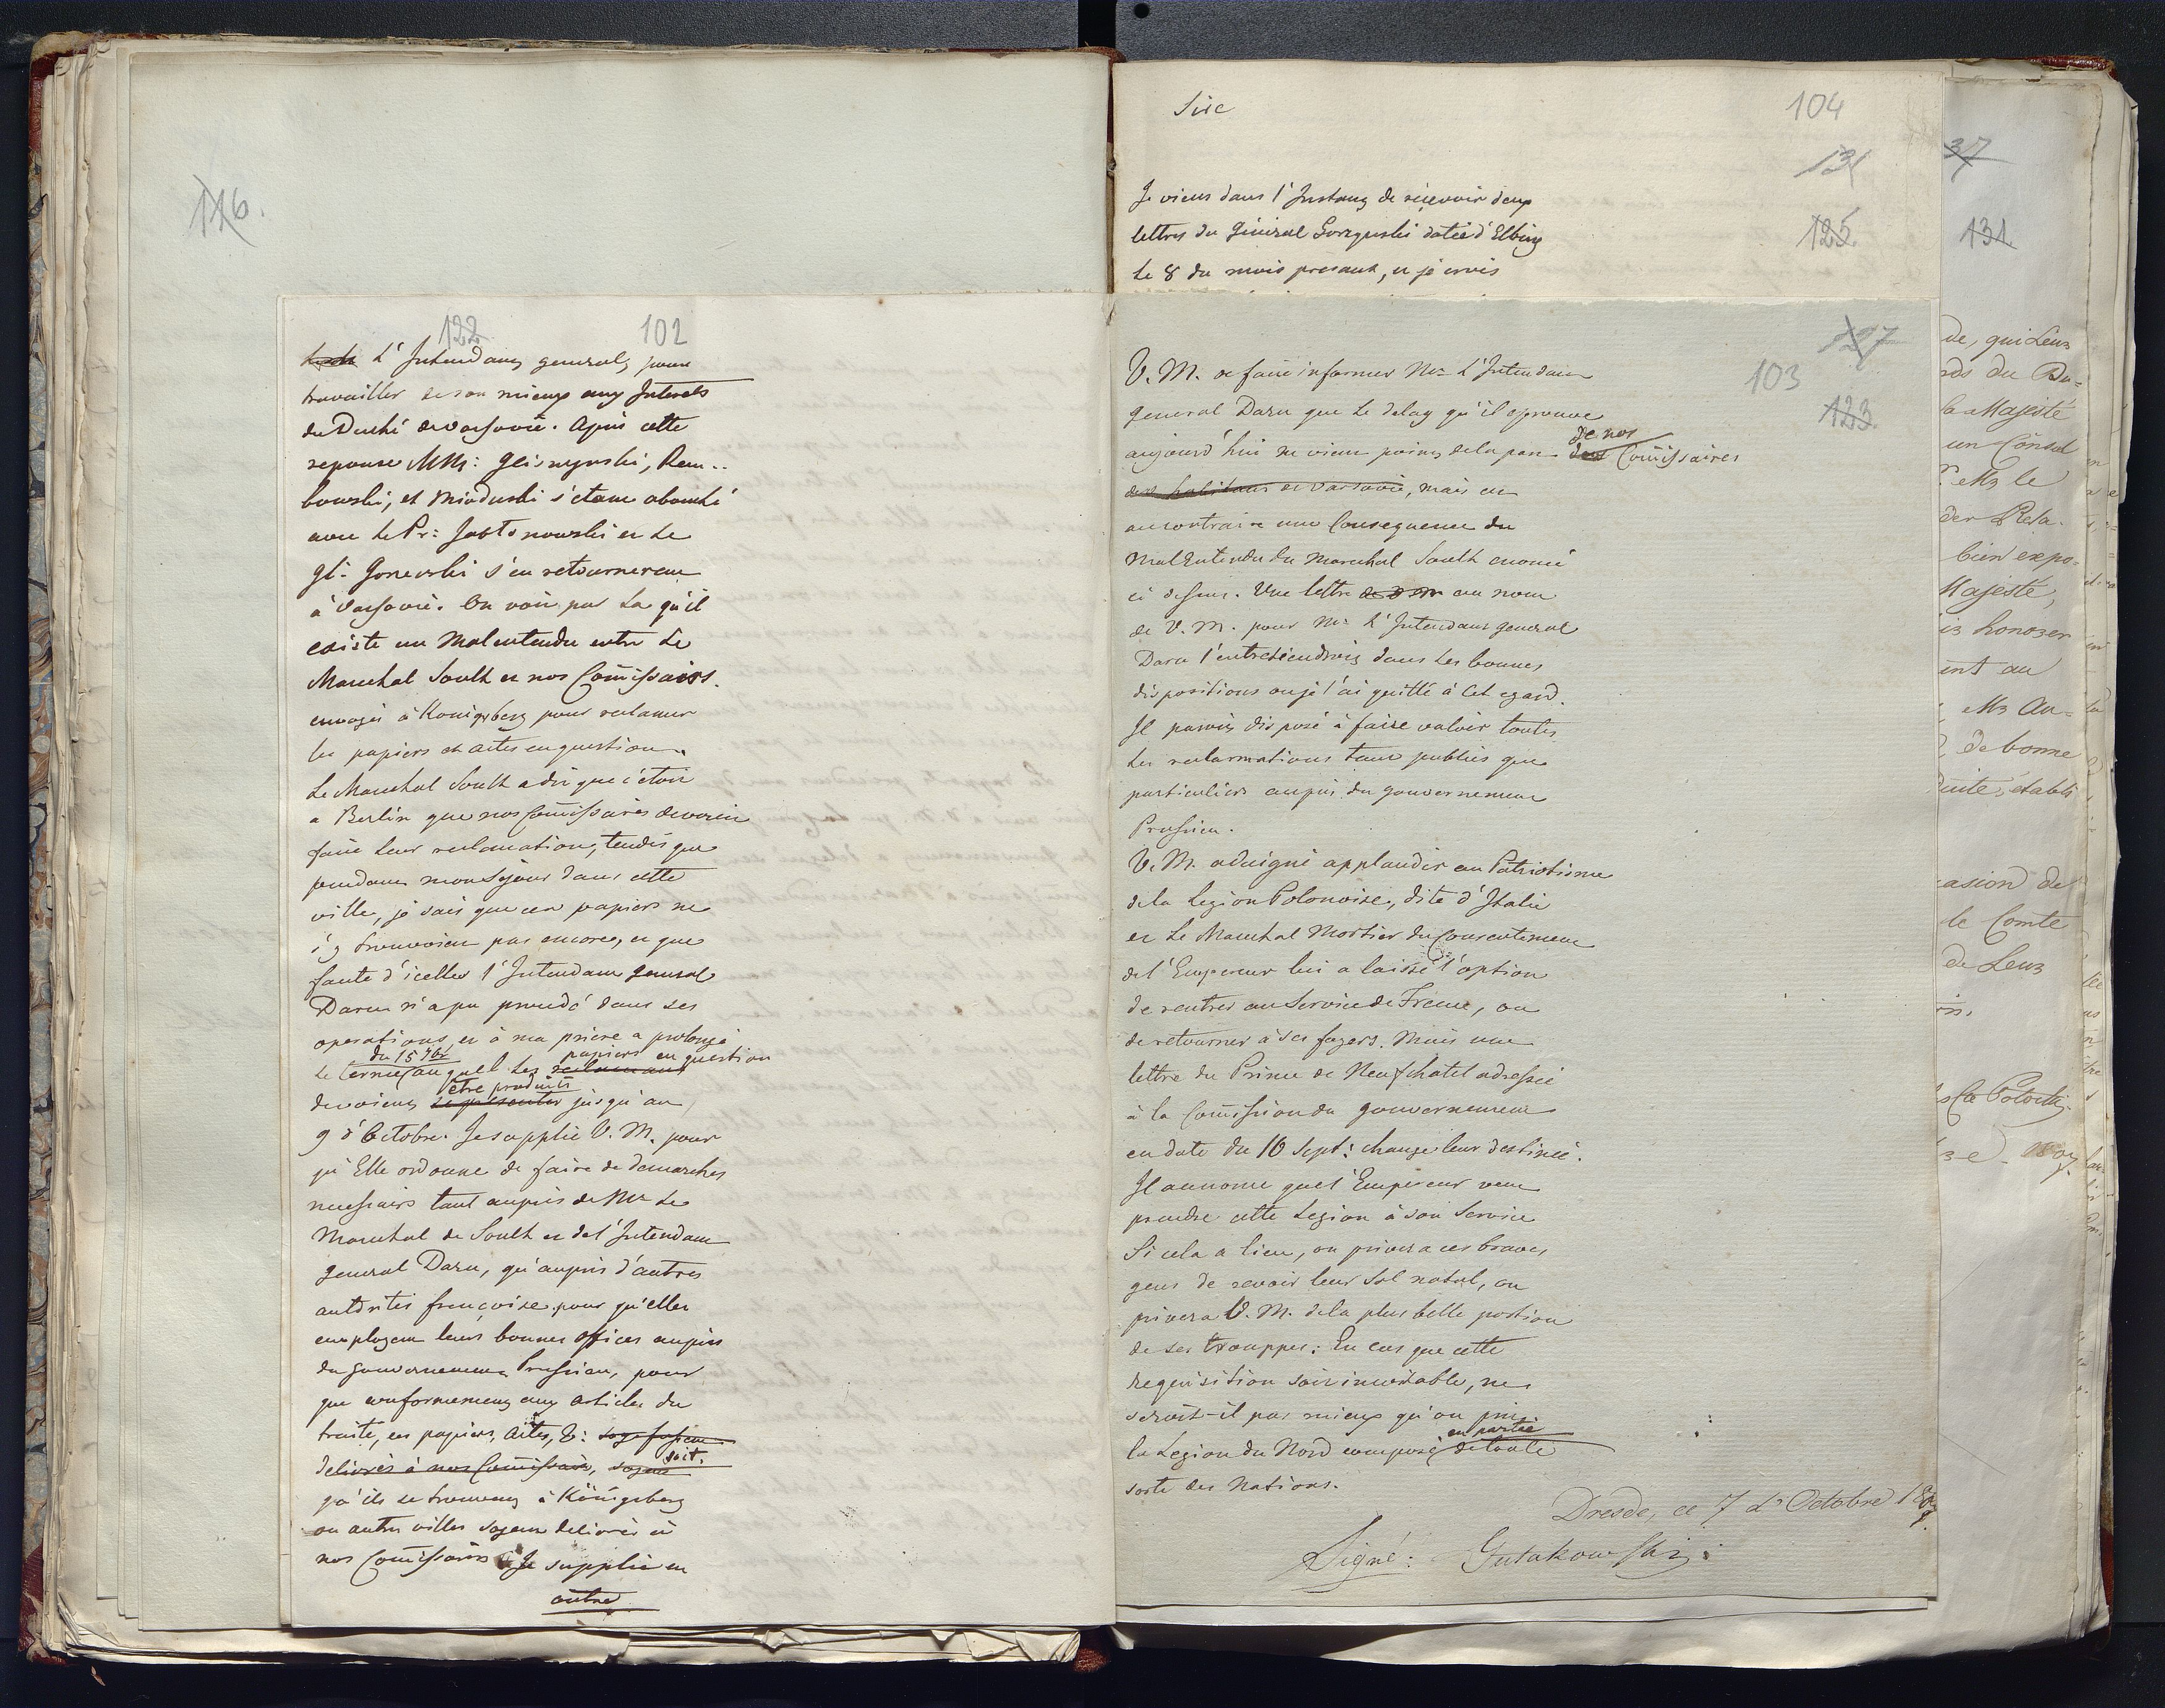 116.
122 102
L'Intendant general, pour
travailler de son mieux aux Interets
du Duché de Varsovie. Après cette
reponse MMs: Gliszynski, Rem..
bowski, et Mioduski s'etant abouché
avec le Pr: Jabłonowski et le
Gl: Gorzenski s'en retournerent
à Varsovie. On voit par La qu'il
existe un Malentendu entre Le
Marechal Soult et nos Com̄issaires.
envoyés à Konigsberg pour reclamer
les papiers et actes en question.
Le Marechal Soult a dit que c'étoit
a Berlin que nos Com̄issaires devoient
faire leur reclamation, tendis que
pendant mon Sejour dans cette
ville, je sais que ces papiers ne
s'y trouvoient pas encore, et que
faute d'icelles l'Intendant general
Daru n'a pu procedé dans ses
operations, et à ma priere a prolongé
du 15 7br papiers en question
Le terme auquel Les reclamans
être produits
devoient se presenter jusqu'au
9 d'Octobre. Je supplie V. M. pour
qu'Elle ordonne de faire de demarches
necessaires tant auprès de Mr Le
Marechal de Soult et de l'Intendant
general Daru, qu'auprès d'autres
autorités françoise pour qu'elles
employent leurs bonnes offices auprès
du gouvernement Prussien, pour
que conformement aux articles du
traité, ces papiers, Actes, &:
soit.
delivrés à nos Com̄issaires, soyent
qu'ils se trouvent à Königsberg
ou autres villes soyent delivrés à
nos Com̄issaires Je supplie en
outre
Sire
104
131
125.
Je viens dans l'Instant de recevoir deux
lettres du Géneral Gorzenski datée d'Elbing
Le 8 du mois presant, et je crois
127
103
123.
V. M. de faire informer Mr L'Intendant
general Daru que Le delay qu'il eprouve
de nos
aujourd'hui ne vient point de la part des Com̄issaires
des habitans de Varsovie, mais est
au contraire une Consequence du
Malentendu du Marechal Soult enoncé
ci dessus. Une lettre au nom
de V. M. pour Mr L'Intendant general
Daru l'entretiendroit dans les bonnes
dispositions ou je l'ai quitté à Cet egard.
Il paroit disposé à faire valoir toutes
Les reclamations tant publics que
particuliers auprès du gouvernement
Prussien.
V. M. a daigné applaudir au Patriotisme
de la Legion Polonoise, dite d'Italie
et Le Marechal Mortier du Consentement
de l'Empereur lui a laissé l'option
de rentrer au Service de France, ou
de retourner à ses foyers. Mais une
lettre du Prince de Neufchatel adressée
à la Com̄ission du gouvernement
en date du 16 Sept: change leur destinée.
Il annonce que l'Empereur veut
prendre cette Legion à son Service
Si cela a lieu, on privera ces braves
gens de revoir leur Sol natal, on
privera V. M. de la plus belle portion
de ses trouppes: En cas que cette
requisition soit inevitable, ne
seroit-il pas mieux qu'on prit
en partie
la Legion du Nord composé de toute
sorte des Nations.
Dresde, ce 7 d'Octobre 1807
Signé: Gutakowski
37
131
de, qui Leur
rds du Du=
la Majesté
un Consul
bien expo=
Majesté,
honorer
ent au
de bonne
établi
casion de
le Comte
de Leur
Potocki